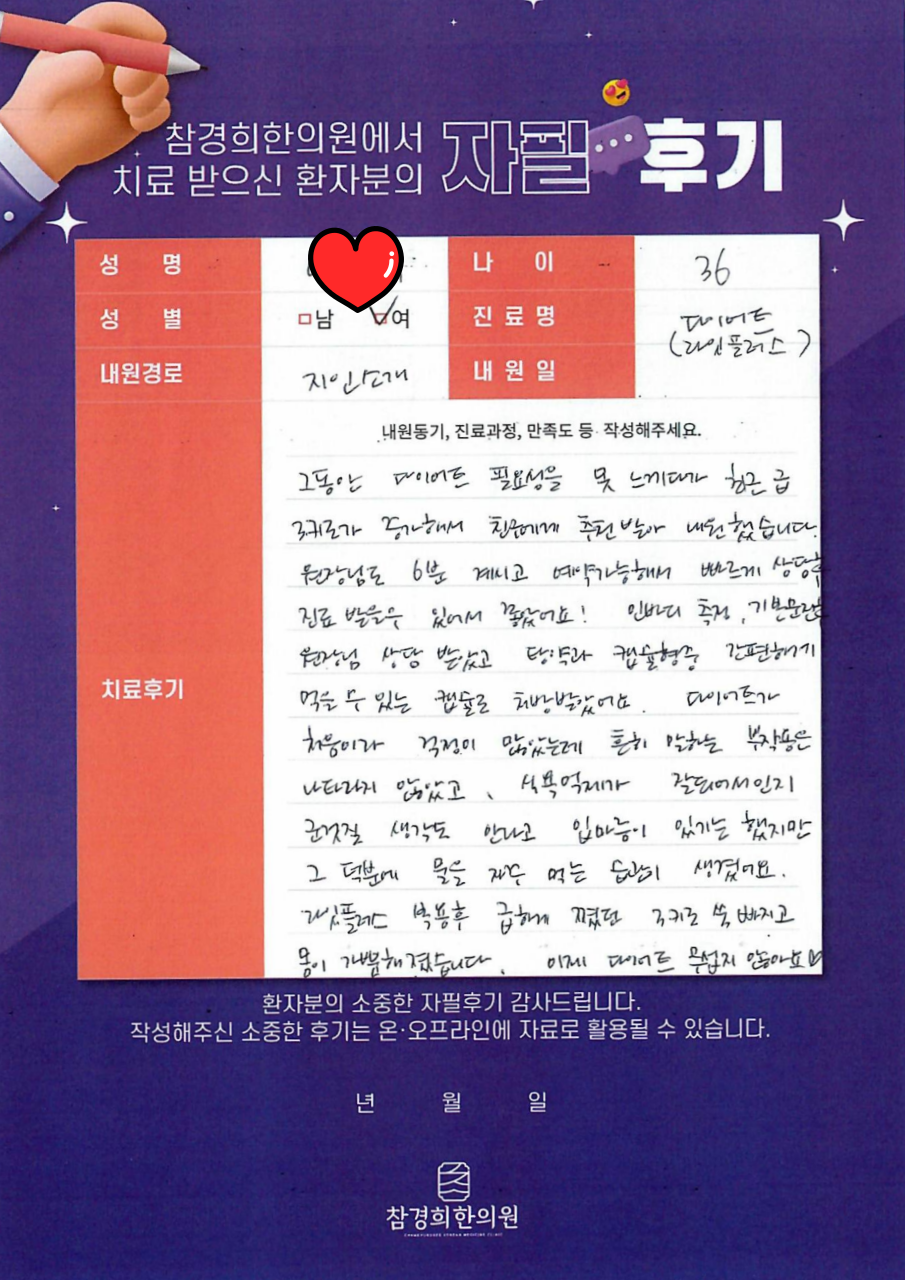 참경희한의원에서
치료 받으신 환자분의 자필 후기
성 명
나 이 36
성 별 남 여
진료명 다이어트
(라인플러스)
내원경로 지인소개
내원일
내원동기, 진료과정, 만족도 등 작성해주세요.
치료후기
그동안 다이어트 필요성을 못 느끼다가 최근 급
3키로가 증가해서 친구에게 추천받아 내원했습니다.
원장님도 6분 계시고 예약가능해서 빠르게 상담후
진료 받을수 있어서 좋았어요! 인바디 측정, 기본문진후
원장님 상담 받았고 탕약과 캡슐형중 간편하게
먹을 수 있는 캡슐로 처방받았어요. 다이어트가
처음이라 걱정이 많았는데 흔히 말하는 부작용은
나타나지 않았고, 식욕억제가 잘되어서인지
군것질 생각도 안나고 입마름이 있기는 했지만
그 덕분에 물을 자주 먹는 습관이 생겼어요.
라인플러스 복용후 급하게 쪘던 3키로 쏙 빠지고
몸이 가뿐해졌습니다. 이제 다이어트 무섭지 않아요♡
환자분의 소중한 자필후기 감사드립니다.
작성해주신 소중한 후기는 온·오프라인에 자료로 활용될 수 있습니다.
년 월 일
참경희한의원